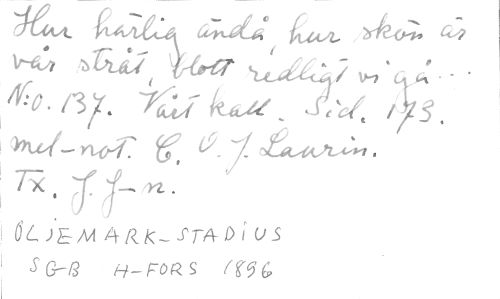 Hur härlig ändå, hur skön är
vår stråt, blott redligt vi gå...
N:o. 137. Vårt kall. Sid. 173.
mel-not. C. O. J. Laurin.
Tx. J. J-n.
OLJEMARK-STADIUS
SGB H-FORS 1896